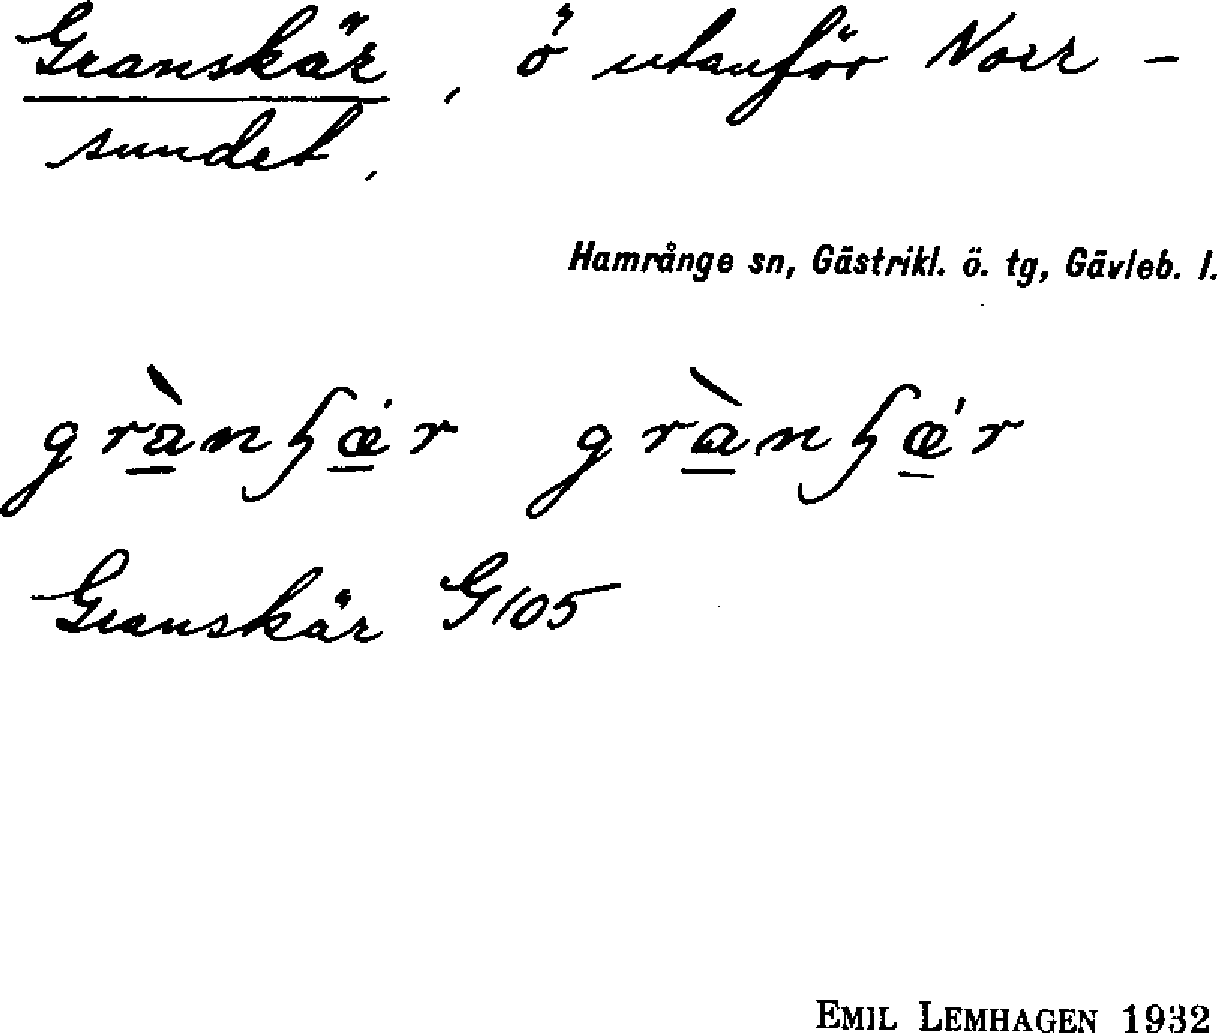 Granskär, ö utanför Norr-
sundet.
Hamrånge sn, Gästrikl. ö. tg, Gävleb. l.
Granskär G105
EMIL LEMHAGEN 1932